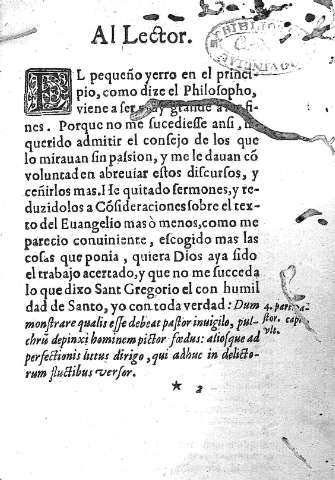 Al Lector.
EL pequeño yerro en el princi-
pio, como dize el Philosopho,
viene a ser muy grande a los fi-
nes. Porque no me sucediesse ansi, he
querido admitir el consejo de los que
lo mirauan sin passion, y me le dauan cõ
voluntad en abreuiar estos discursos, y
ceñirlos mas. He quitado sermones, y re-
duzidolos a Cõsideraciones sobre el tex-
to del Euangelio mas ò menos, como me
parecio conuiniente, escogido mas las
cosas que ponia, quiera Dios aya sido
el trabajo acertado, y que no me succeda
lo que dixo Sant Gregorio el con humil
dad de Santo, yo con toda verdad: Dum
monstrare qualis esse debeat pastor inuigilo, pul-
chrũ depinxi hominem pictor fœdus: aliosque ad
perfectionis littus dirigo, qui adhuc in delicto-
rum fluctibus versor.
4. par. pa-
stor. capi.
vlt.
* 2